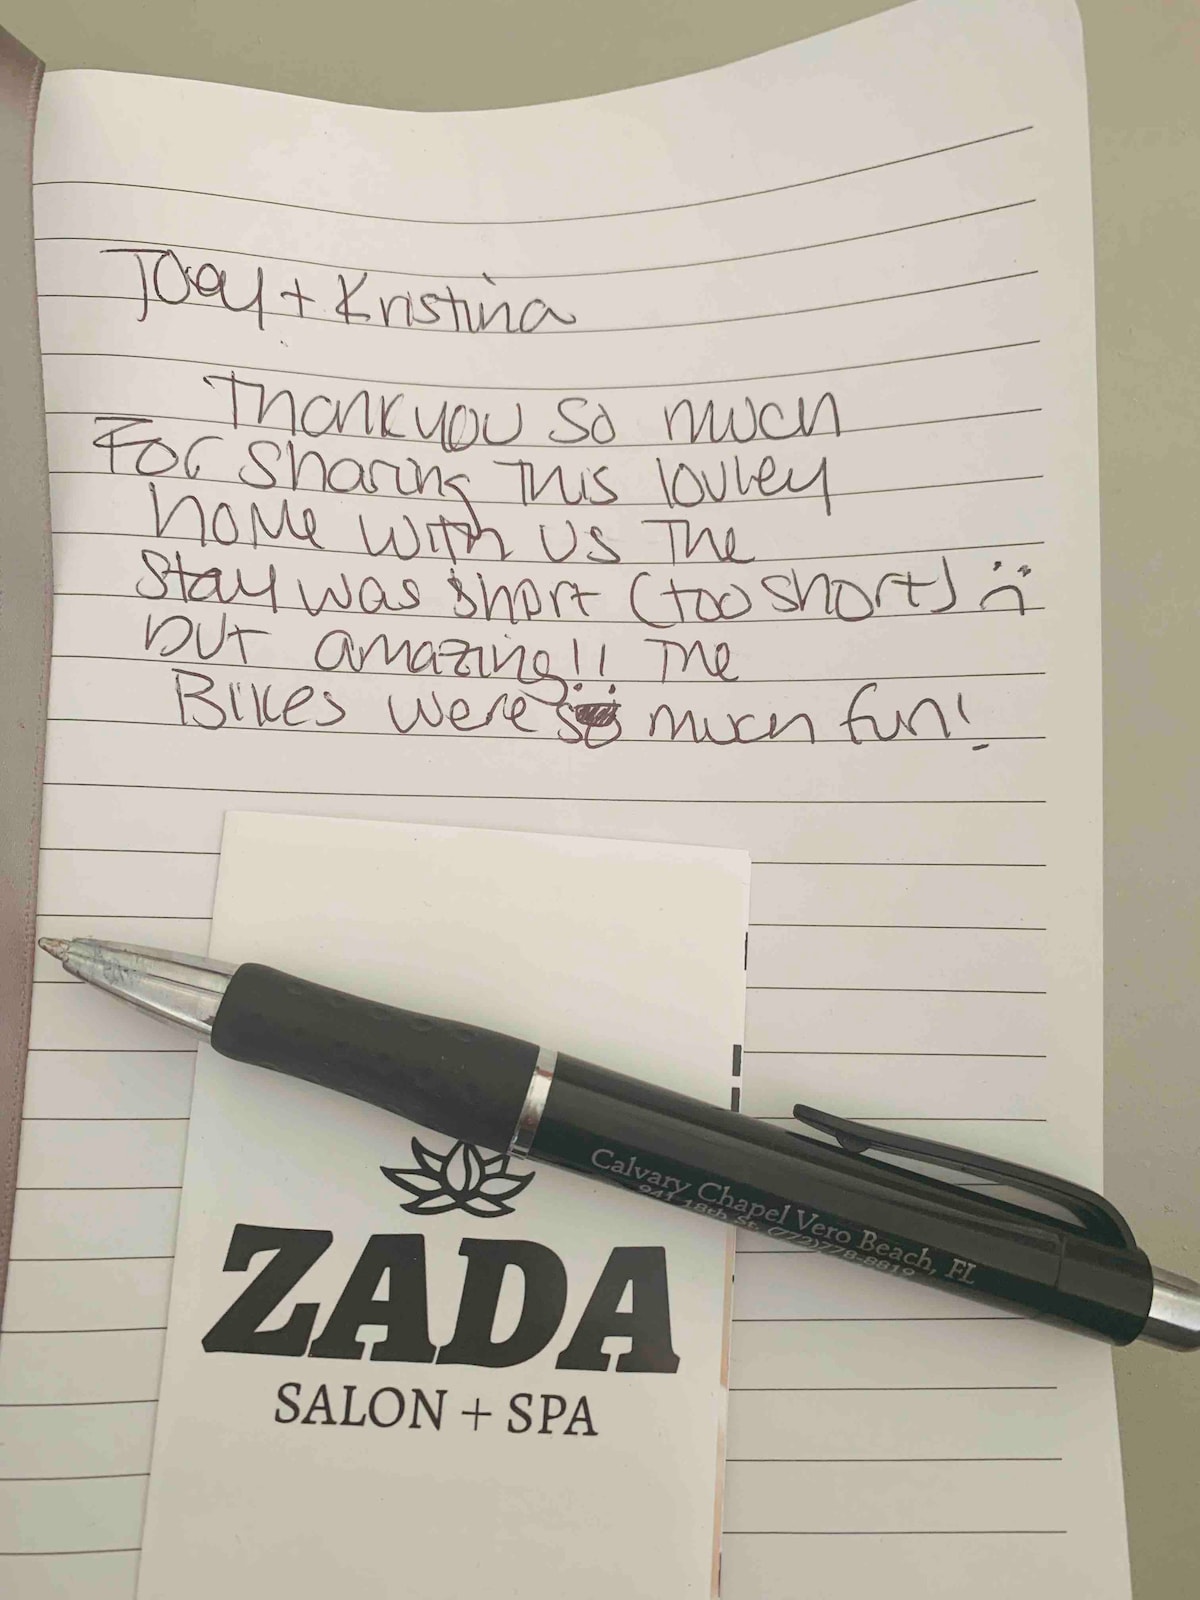 Joey + Kristina
Thank you so much
For sharing this lovley
home with us The
stay was short (too short) :(
but amazing!! The
Bikes were so much fun!
Calvary Chapel Vero Beach, FL
941 18th St. (772)778-8819
ZADA
SALON + SPA